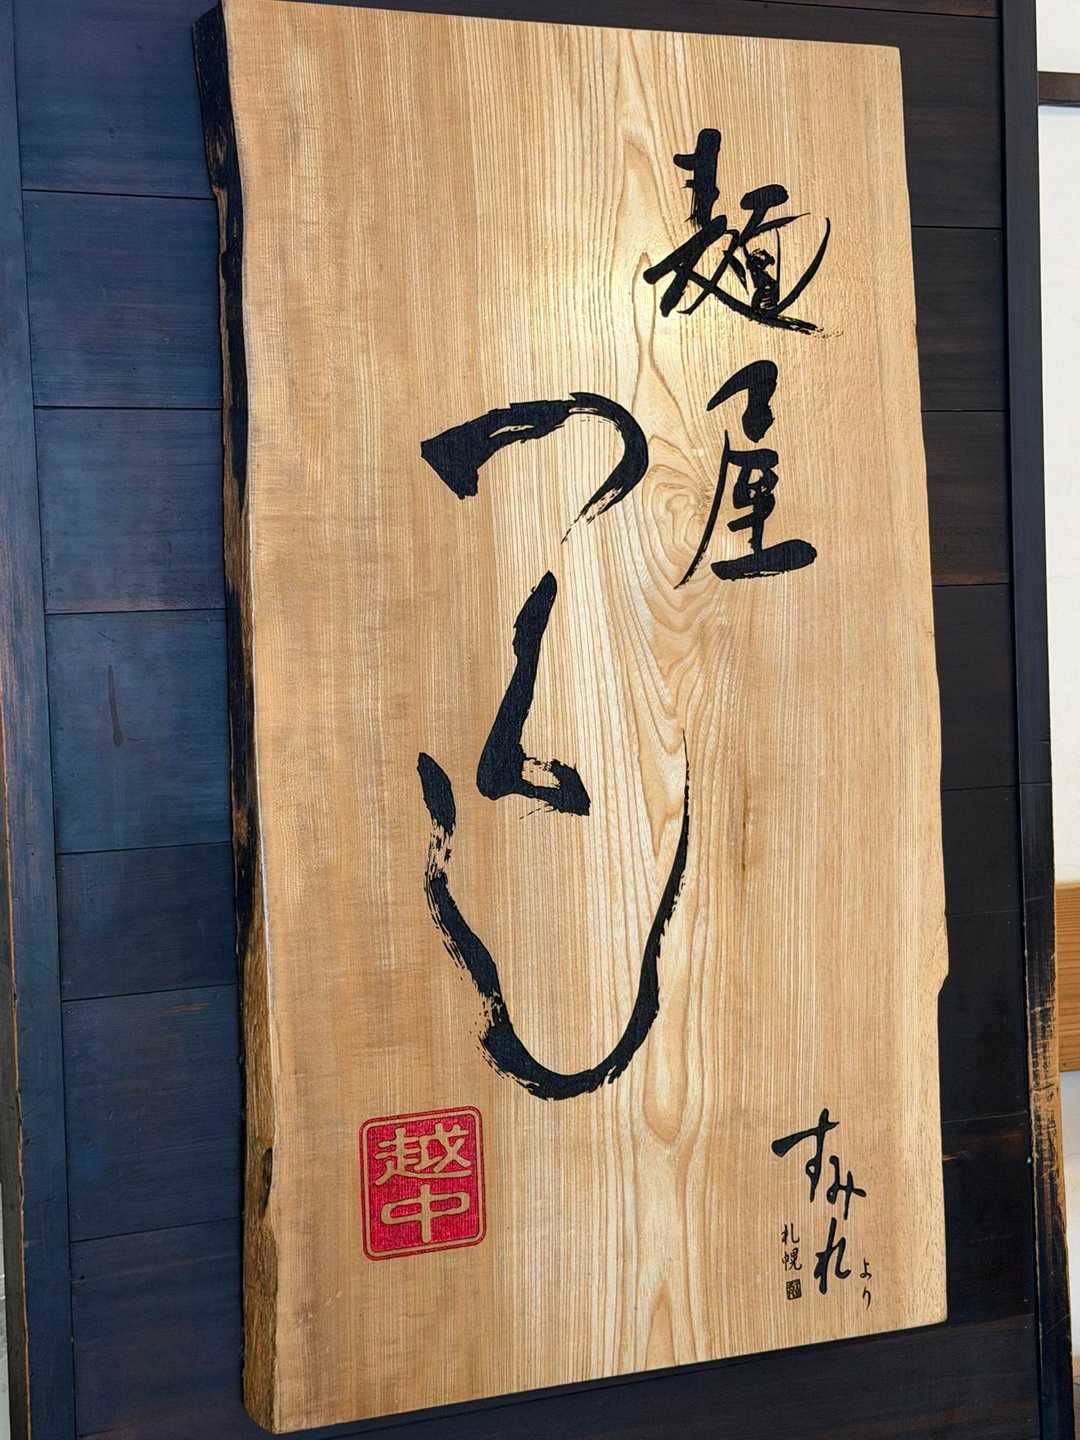 麺屋
つくし
すみれ
より
札幌
越中